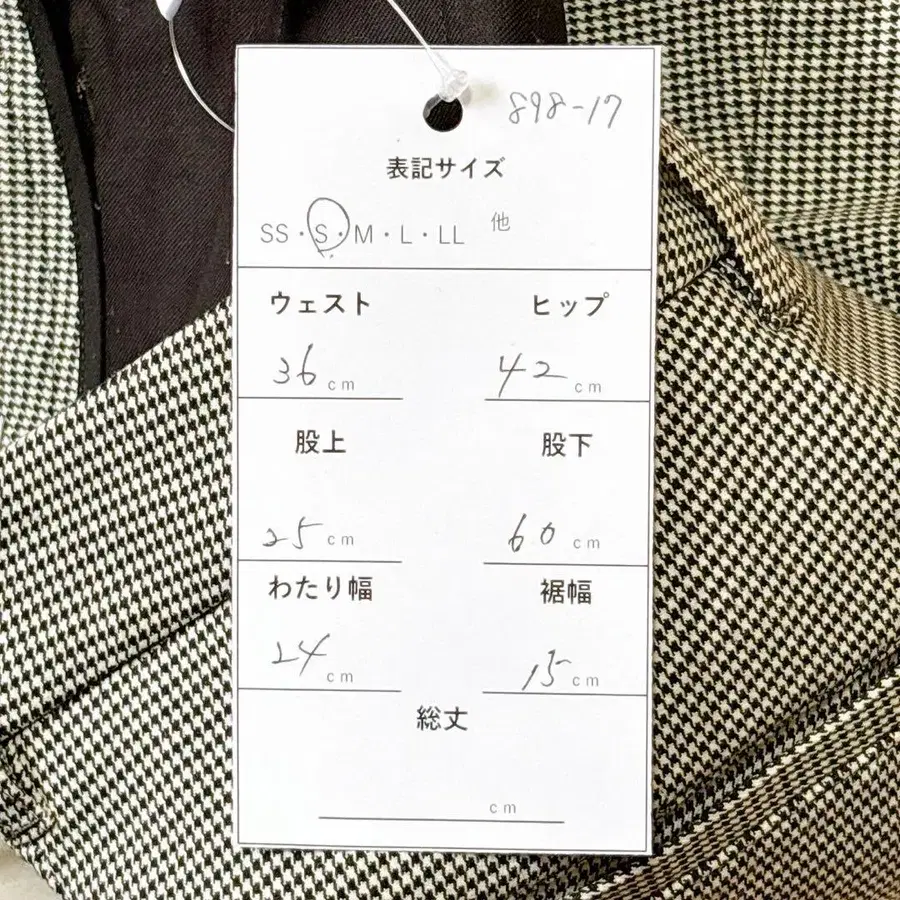 898-17
表記サイズ
SS・S・M・L・LL 他
ウェスト ヒップ
36 cm 42 cm
股上 股下
25 cm 60 cm
わたり幅 裾幅
24 cm 15 cm
総丈
cm